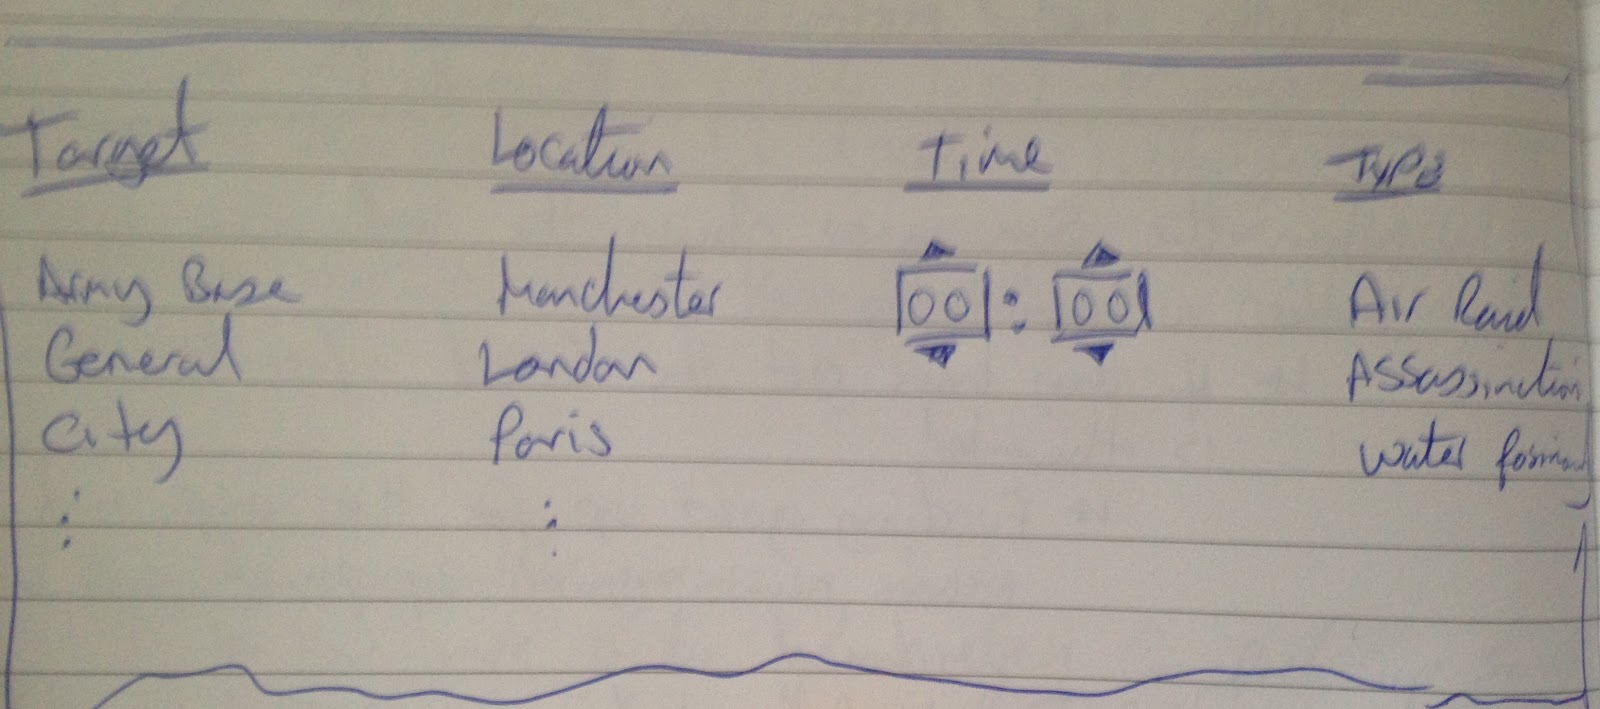 Target Location Time Type
Army Base Manchester 00 : 00 Air Raid
General London Assassination
City Paris Water